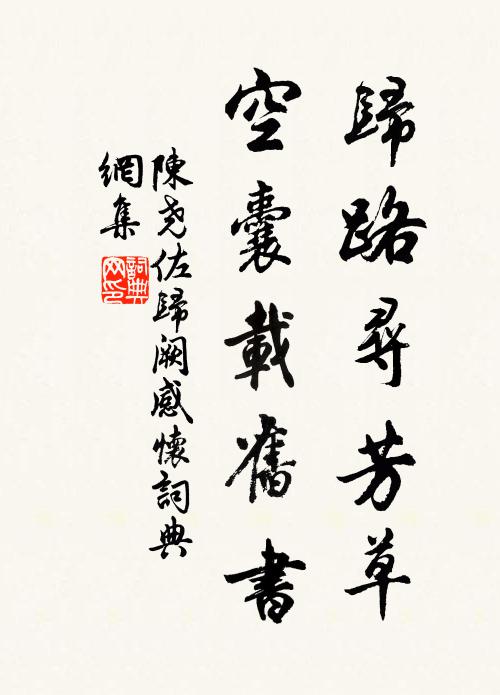 歸路尋芳草
空囊載舊書
陳堯佐歸闕感懷詞典
網集
詞典網印